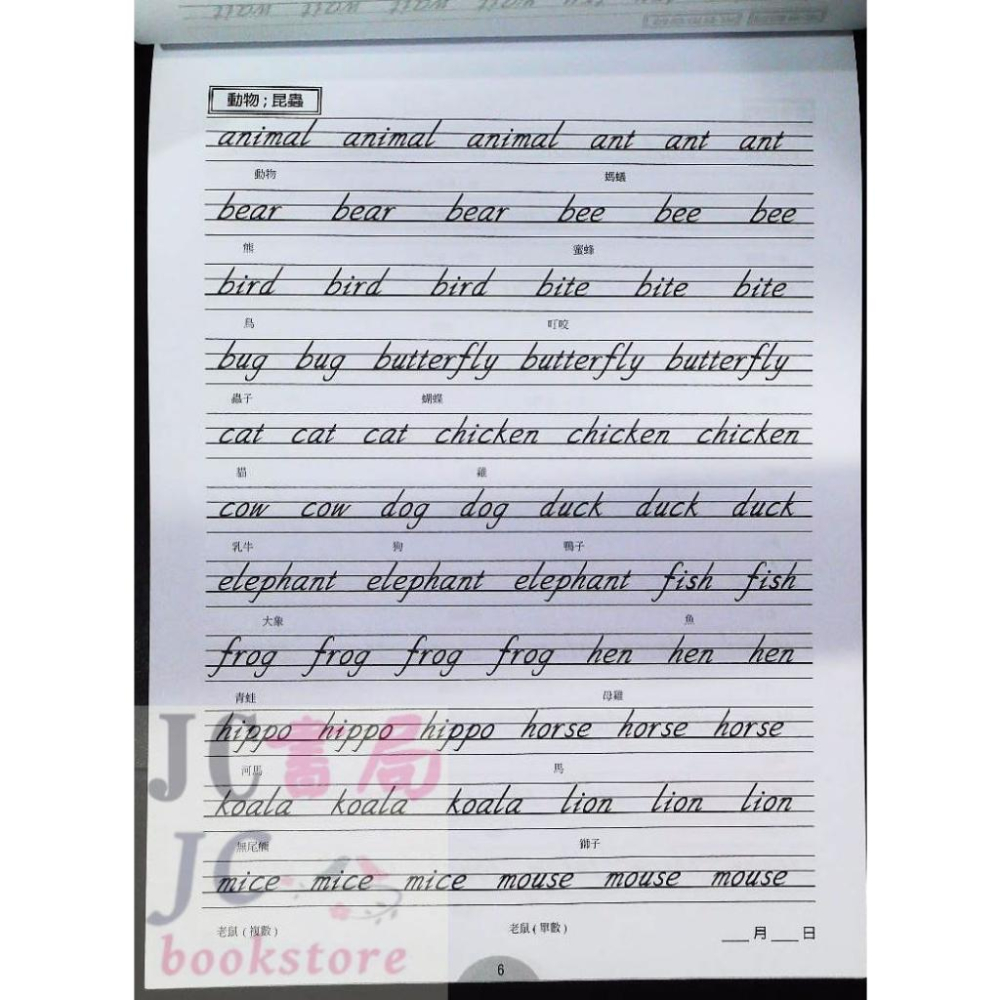 動物；昆蟲
animal animal animal ant ant ant
動物 螞蟻
bear bear bear bee bee bee
熊 蜜蜂
bird bird bird bite bite bite
鳥 叮咬
bug bug butterfly butterfly butterfly
蟲子 蝴蝶
cat cat cat chicken chicken chicken
貓 雞
cow cow dog dog duck duck duck
乳牛 狗 鴨子
elephant elephant elephant fish fish
大象 魚
frog frog frog frog hen hen hen
青蛙 母雞
hippo hippo hippo horse horse horse
JC書局
河馬 馬
koala koala koala lion lion lion
JC
無尾熊 獅子
mice mice mice mouse mouse mouse
老鼠(複數) 老鼠(單數) ___月___日
bookstore
6